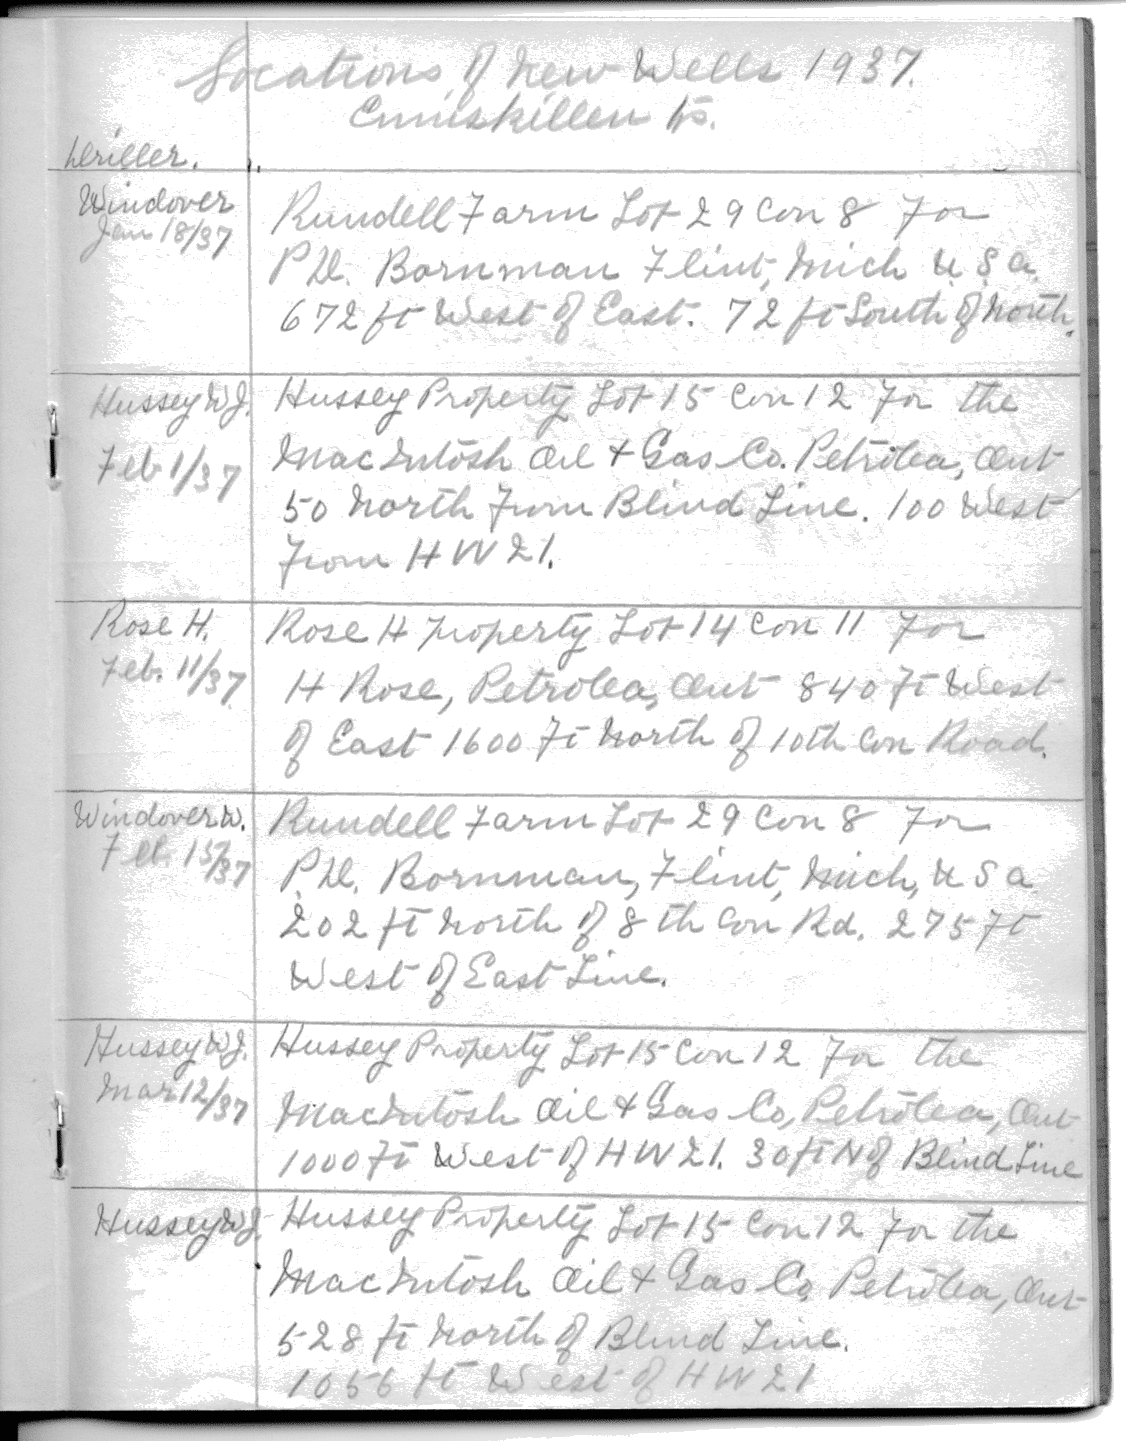 Locations of New Wells 1937.
Enniskillen
Driller.
Windover
Jan 18/37
Rundell Farm Lot 29 Con 8 For
P.D. Bornman Flint, Mich U.S.a.
672 ft West of East. 72 ft South of North.
Hussey W.J.
Feb 1/37
Hussey Property Lot 15 Con 12 For the
MacIntosh Oil + Gas Co. Petrolea, Ont
50 North From Blind Line. 100 West
From H W 21.
Rose H.
Feb. 11/37
Rose H Property Lot 14 Con 11 For
H Rose, Petrolea, Ont 840 Ft West
of East 1600 Ft North of 10th Con Road.
Windover W.
Feb. 15/37
Rundell Farm Lot 29 Con 8 For
P.D. Bornman, Flint, Mich, U S a
202 ft North of 8 th Con Rd. 275 ft
West of East Line.
Hussey W.J.
Mar 12/37
Hussey Property Lot 15 Con 12 For the
MacIntosh Oil + Gas Co, Petrolea, Ont
1000 Ft West of H W 21. 30 ft N of Blind Line
Hussey W.J.
Hussey Property Lot 15 Con 12 For the
MacIntosh Oil + Gas Co Petrolea, Ont
528 ft North of Blind Line.
1056 ft West of H W 21